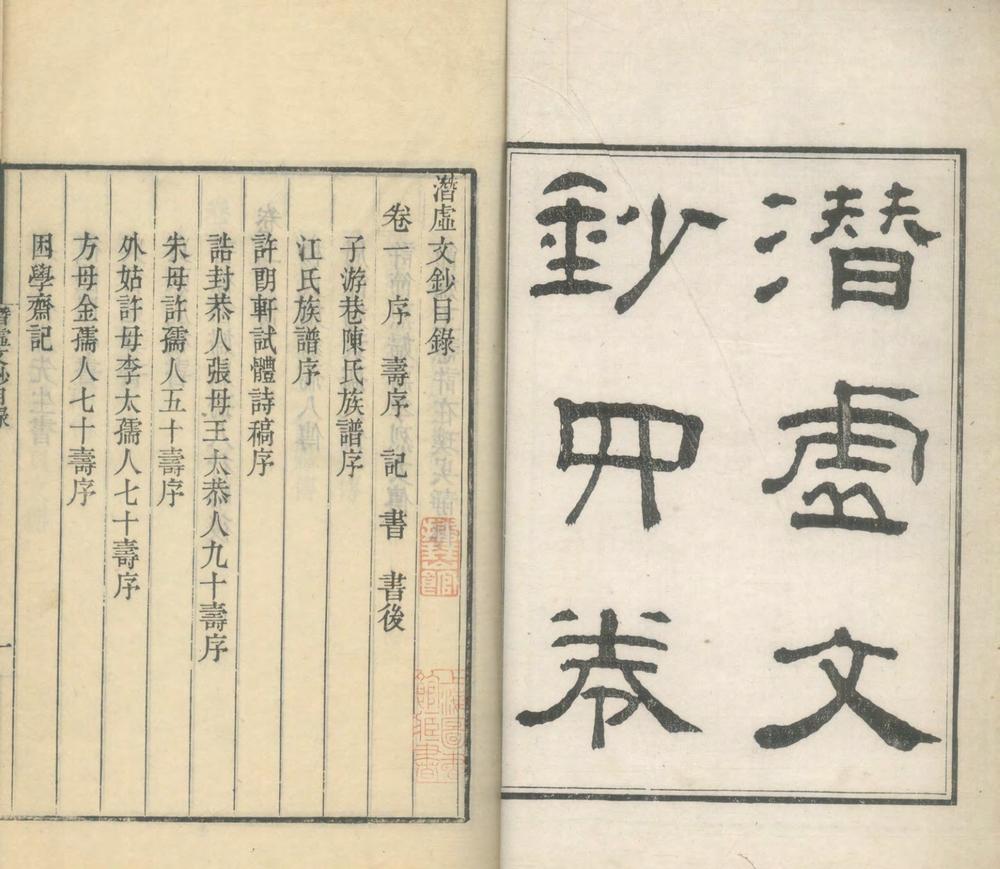 潛虛文
鈔四卷
潛虛文鈔目錄
卷一序 壽序 記 書 書後
子游巷陳氏族譜序
江氏族譜序
許閉軒試體詩稿序
誥封恭人張母王太恭人九十壽序
朱母許孺人五十壽序
外姑許母李太孺人七十壽序
方母金孺人七十壽序
困學齋記
潛虛文鈔目錄
一